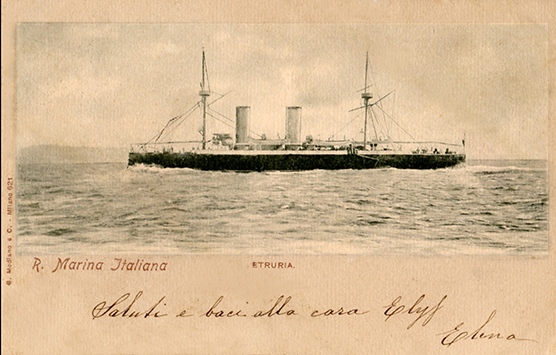 G. Modiano & C. - Milano 621
R. Marina Italiana
ETRURIA.
Saluti e baci alla cara Elyf
Elena